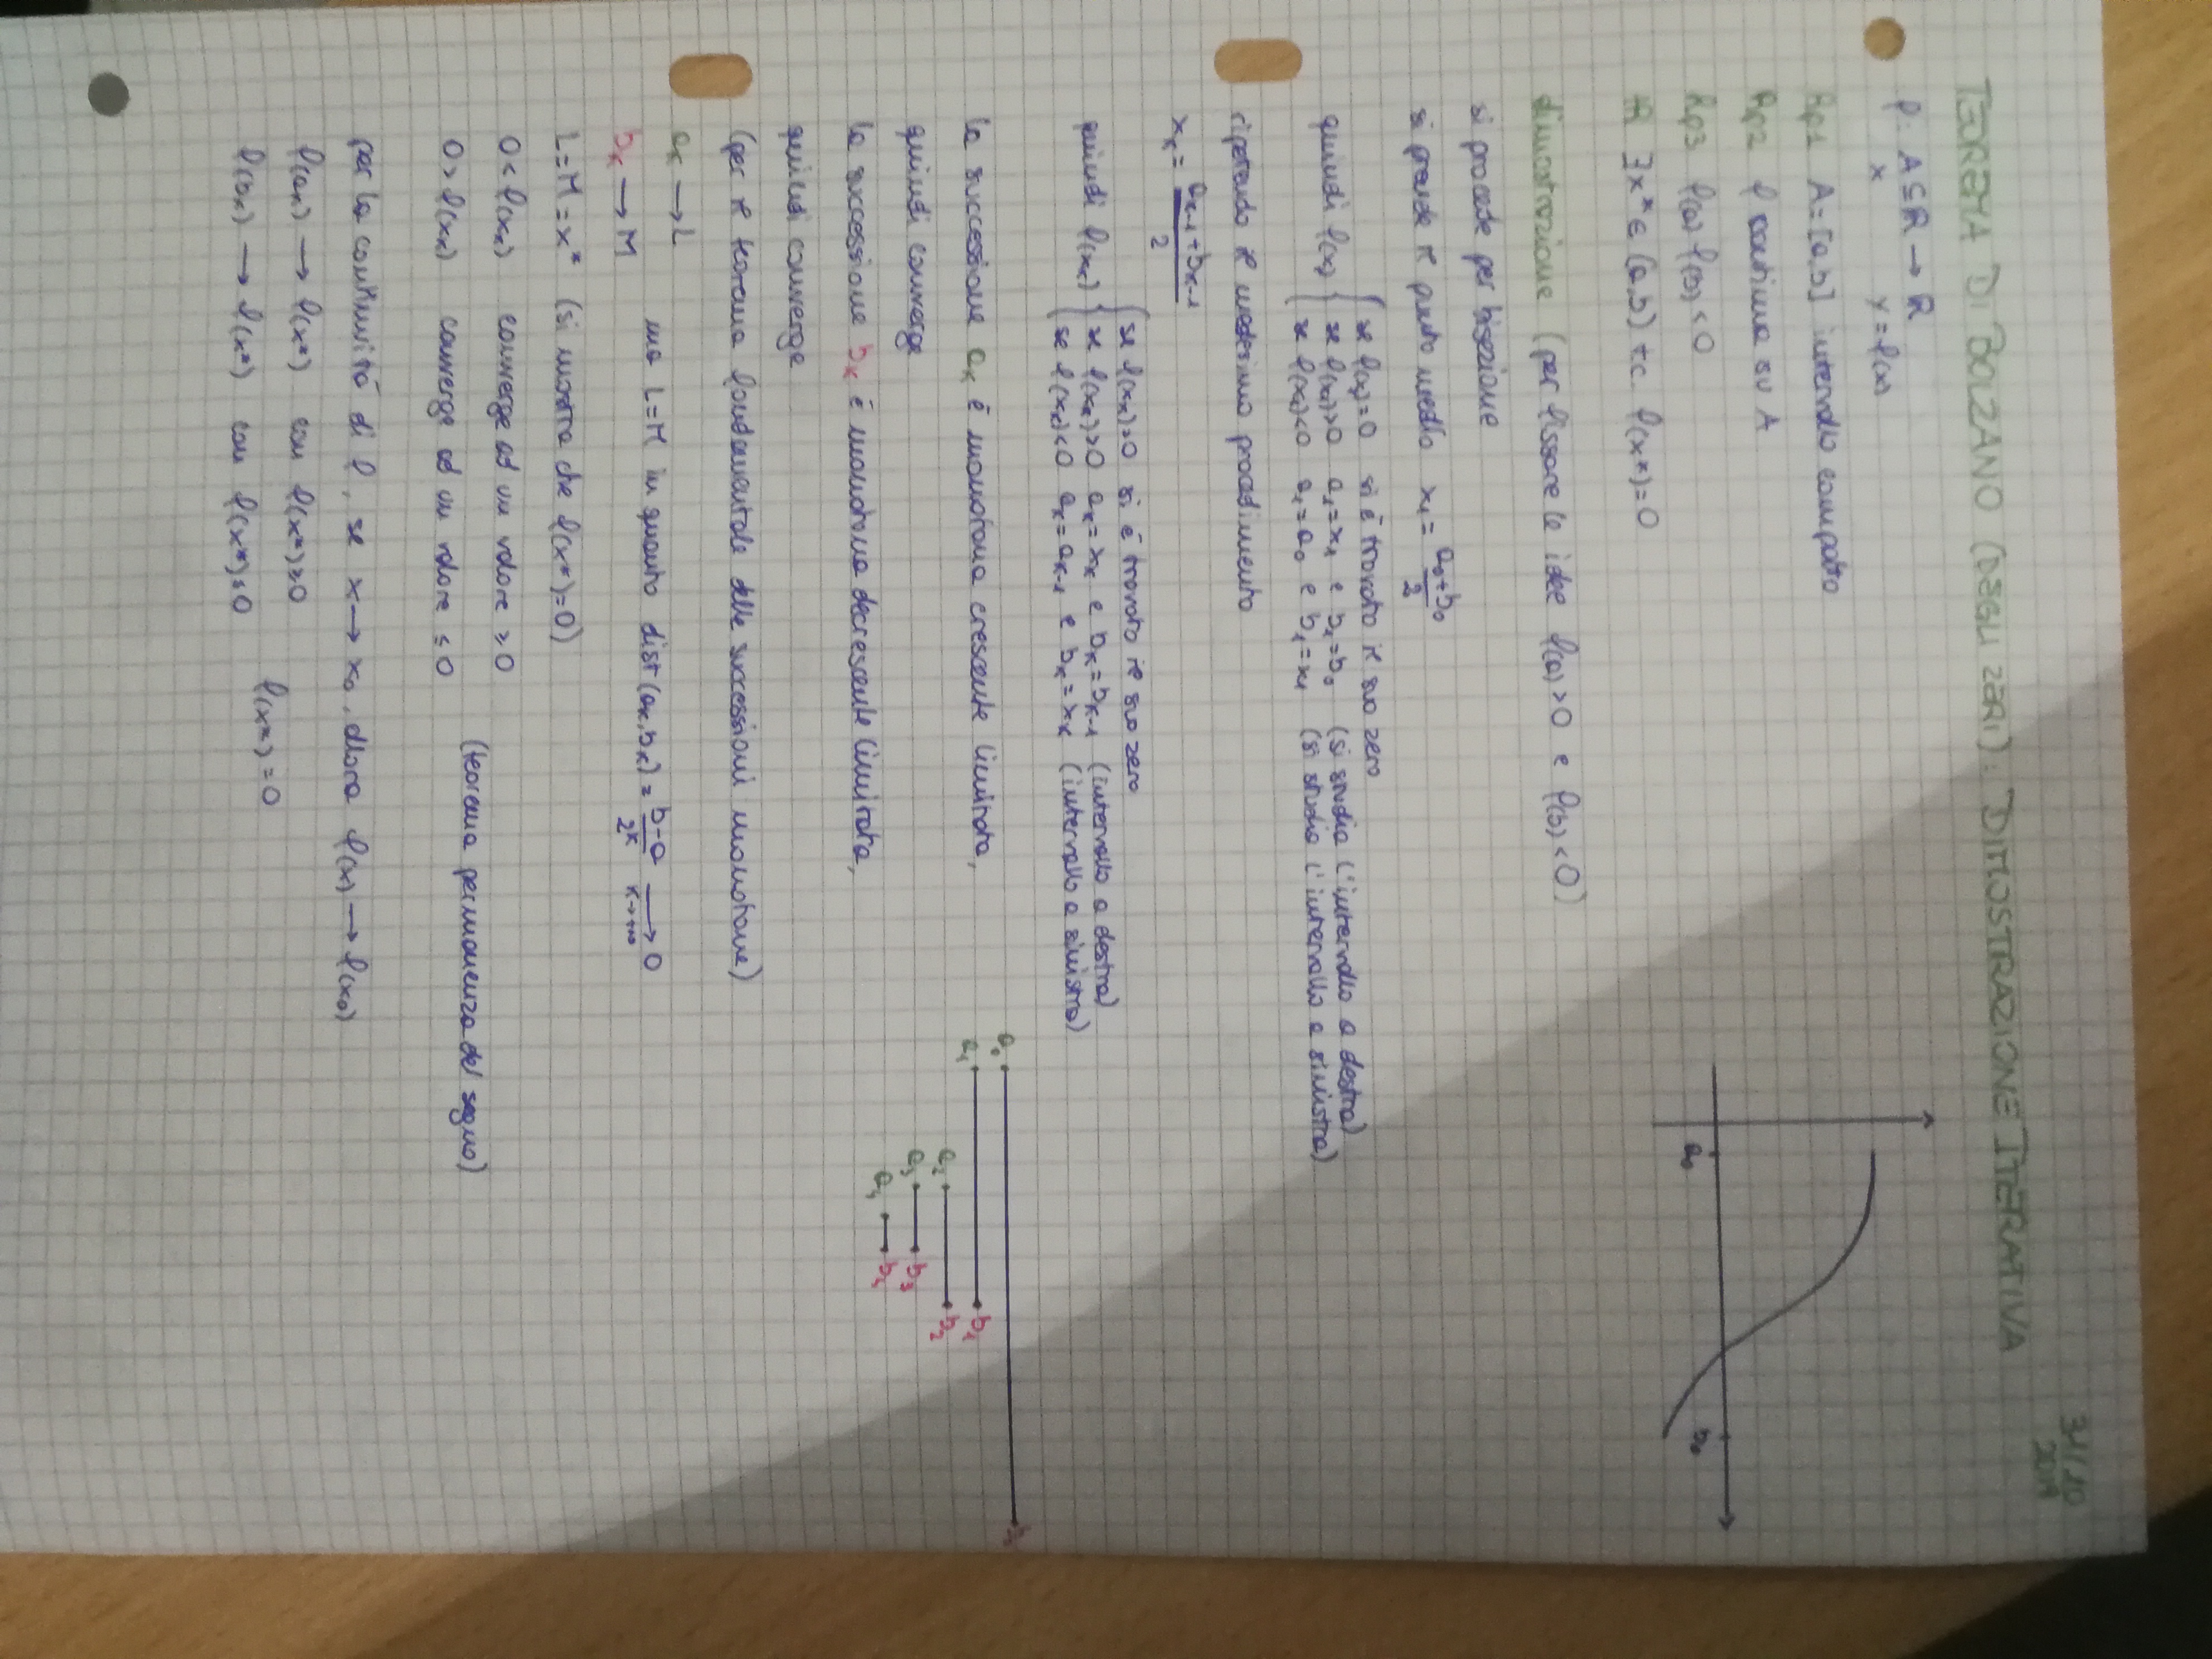 31/10
2019
TEOREMA DI BOLZANO (DEGLI ZERI): DIMOSTRAZIONE ITERATIVA
f: A ⊆ R → R
x y = f(x)
Hp1 A = [a,b] intervallo compatto
Hp2 f continua su A
Hp3 f(a) f(b) < 0
∃x* ∈ (a,b) t.c. f(x*) = 0
a₀ b₀
dimostrazione (per fissare le idee f(a) > 0 e f(b) < 0)
si procede per bisezione
si prende il punto medio x₁ = (a₀+b₀)/2
se f(x₁)=0 si è trovato il suo zero
quindi f(x₁) { se f(x₁)>0 a₁=x₁ e b₁=b₀ (si studia l'intervallo a destra)
se f(x₁)<0 a₁=a₀ e b₁=x₁ (si studia l'intervallo a sinistra)
ripetendo il medesimo procedimento
xₖ = (aₖ₋₁+bₖ₋₁)/2
se f(xₖ)=0 si è trovato il suo zero
quindi f(xₖ) { se f(xₖ)>0 aₖ=xₖ e bₖ=bₖ₋₁ (intervallo a destra)
se f(xₖ)<0 aₖ=aₖ₋₁ e bₖ=xₖ (intervallo a sinistra)
la successione aₖ è monotona crescente limitata,
quindi converge
la successione bₖ è monotona decrescente limitata,
quindi converge
a₀
a₁ b₁
a₂ b₂
a₃ b₃
a₄ b₄
(per il teorema fondamentale delle successioni monotone)
aₖ → L
ma L=M in quanto dist(aₖ,bₖ) = (b-a)/2ᵏ → 0
k→+∞
bₖ → M
L=M=x* (si mostra che f(x*)=0)
0 < f(xₖ) converge ad un valore ≥ 0
(teorema permanenza del segno)
0 > f(xₖ) converge ad un valore ≤ 0
per la continuità di f, se x → x₀, allora f(x) → f(x₀)
f(aₖ) → f(x*) con f(x*) ≥ 0
f(x*) = 0
f(bₖ) → f(x*) con f(x*) ≤ 0